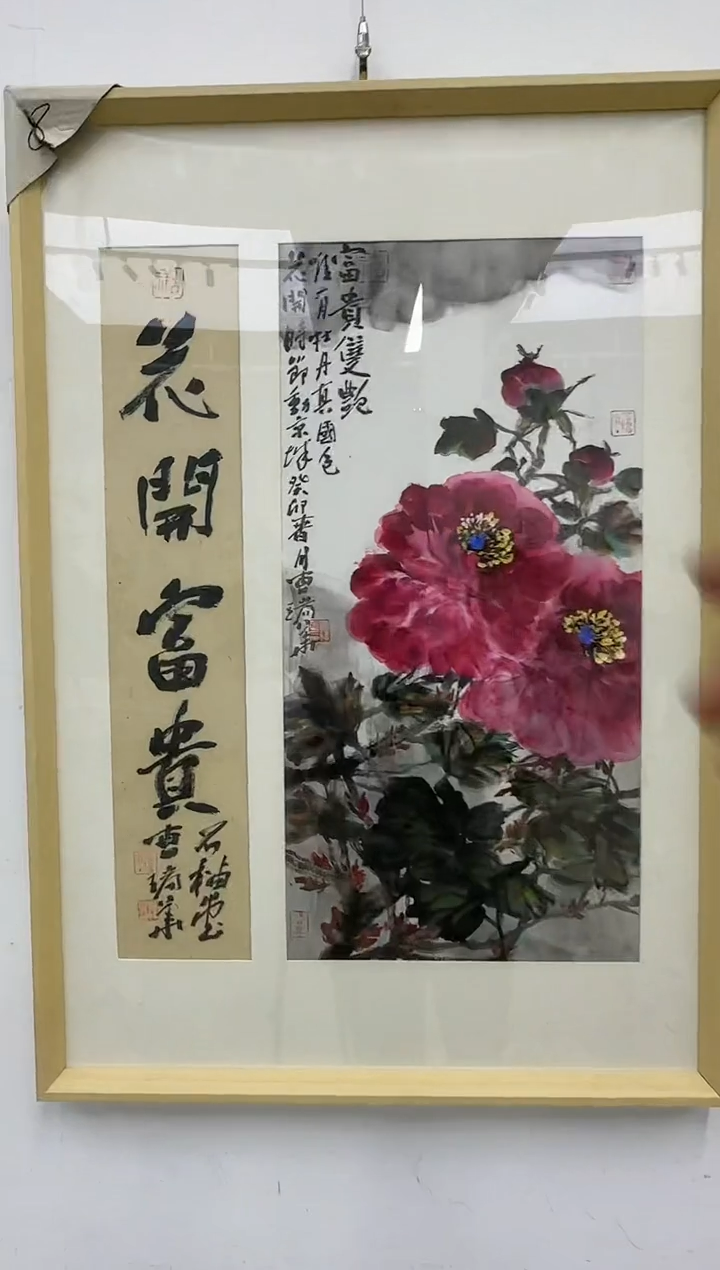 8
富貴雙艶
唯有牡丹真國色
花開時節動京城癸卯春月曹瑞華
花開富貴
石柚堂
曹瑞華